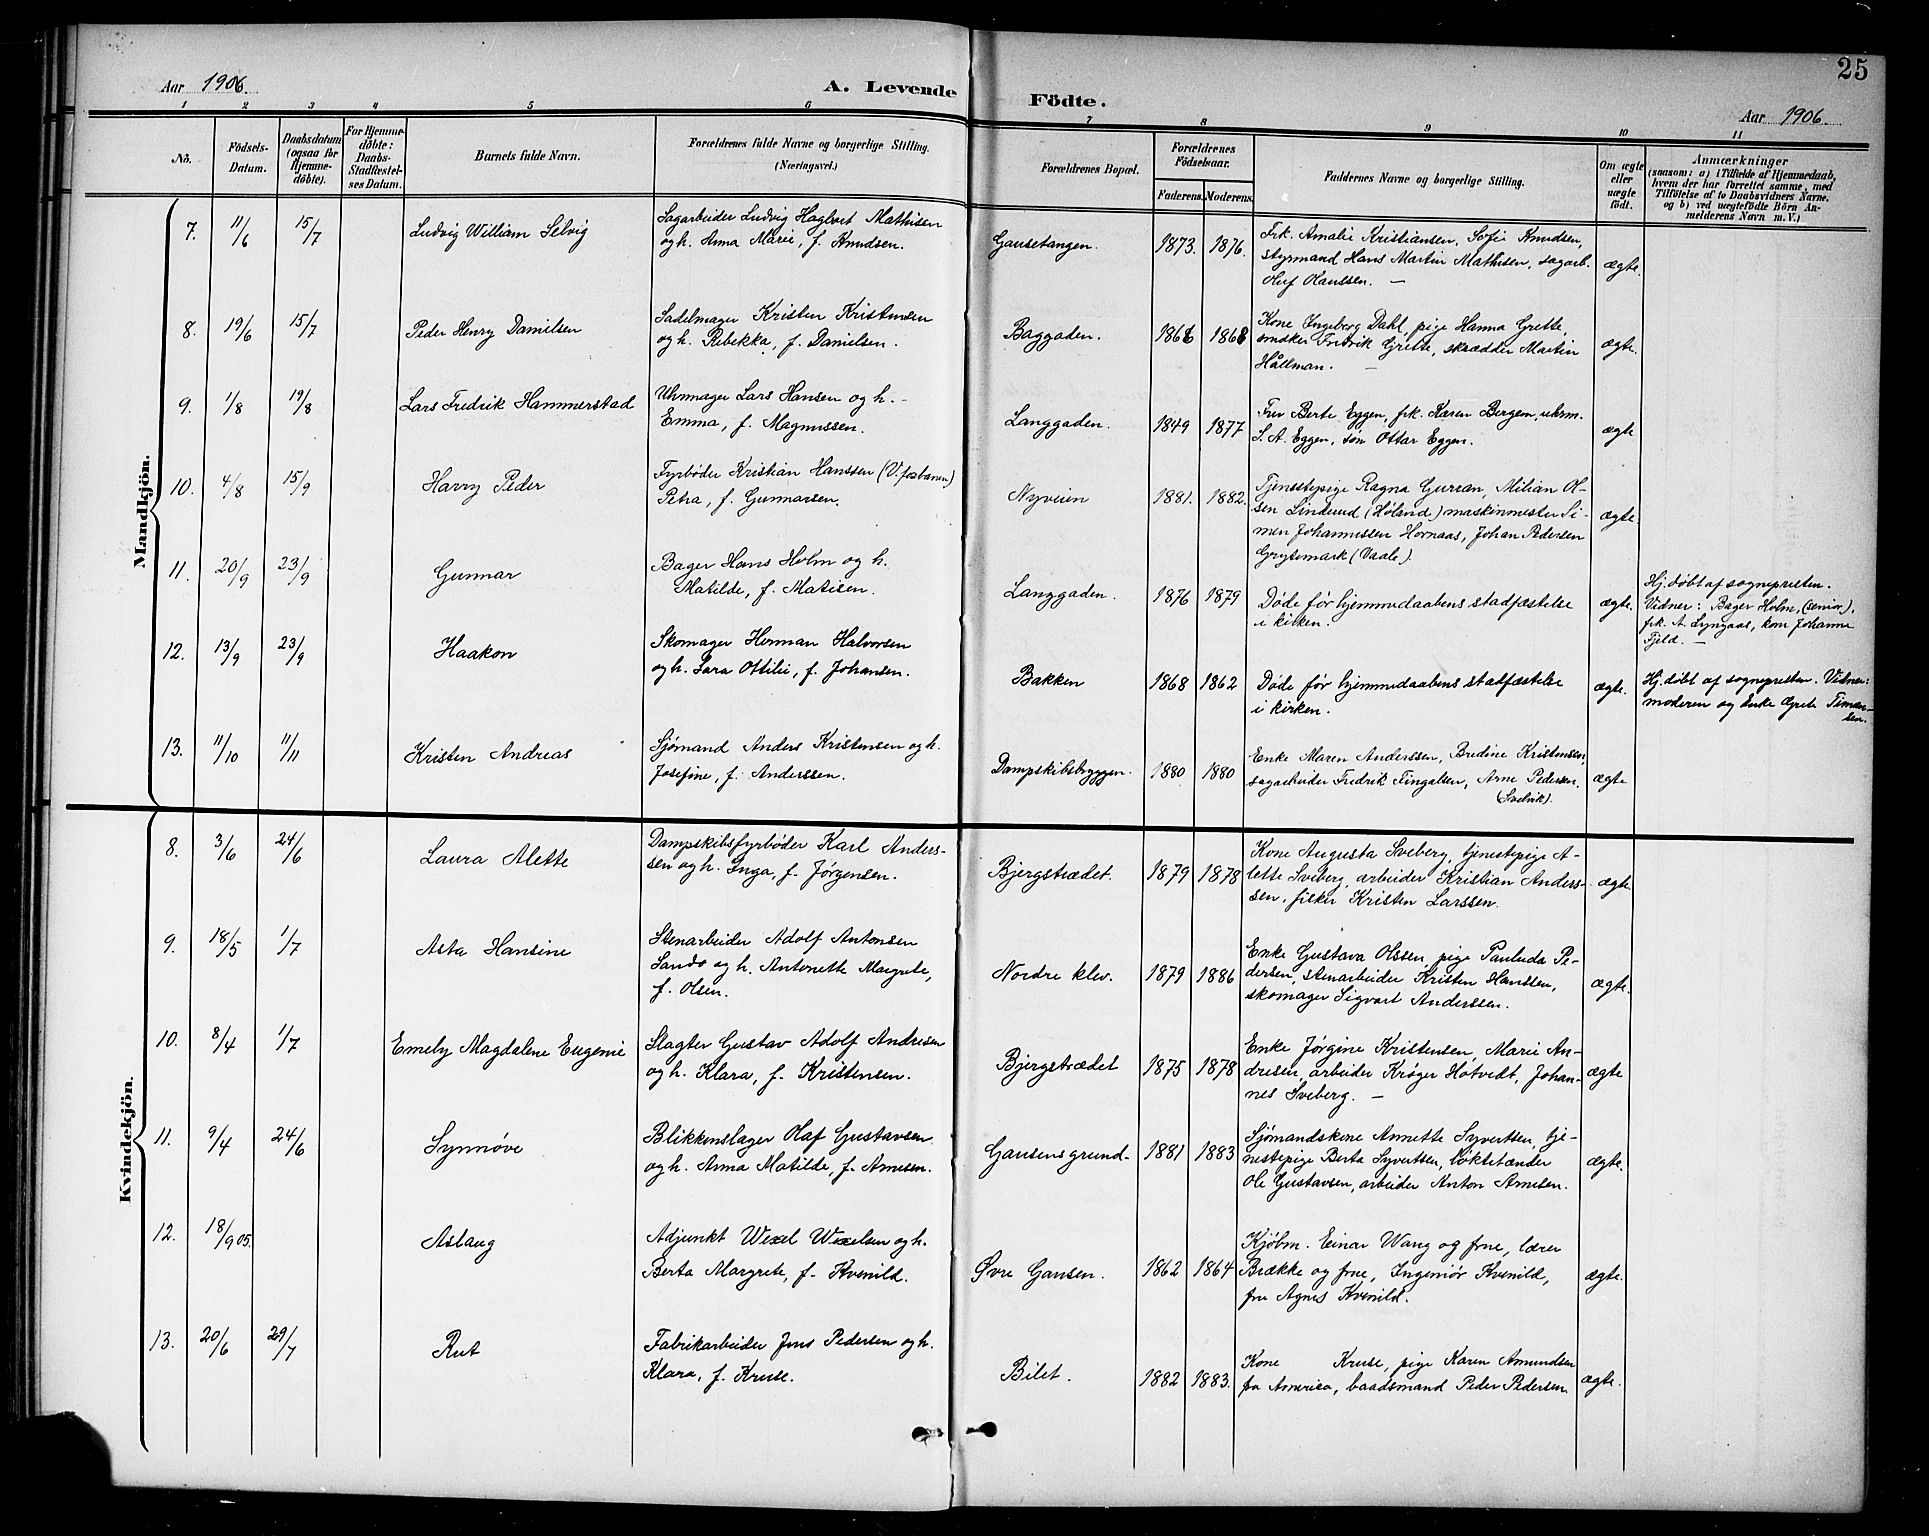 25
Aar 1906.
A. Levende Födte.
Aar 1906.
1 2 3 4 5 6 7 8 9 10 11
No.
Födsels-
Datum.
Daabsdatum
(ogsaa for
Hjemme-
döbte).
For Hjemme-
döbte:
Daabs-
Stadfæstel-
ses Datum.
Barnets fulde Navn.
Forældrenes fulde Navne og borgerlige Stilling.
(Næringsvei.)
Forældrenes Bopæl.
Forældrenes
Födselsaar.
Faderens. Moderens.
Faddernes Navne og borgerlige Stilling.
Om ægte
eller
uægte
födt.
Anmærkninger
(saasom: a) i Tilfælde af Hjemmedaab,
hvem der har forrettet samme, med
Tilföielse af to Daabsvidners Navne.
og b) ved uægtefödte Börn An-
melderens Navn m. V.)
Mandkjön.
7. 11/6 15/7 Ludvig William Selvig
Sagarbeider Ludvig Haglbert Mathisen
og h. Anna Marie, f. Knudsen.
Gausetangen. 1873. 1876.
Frk. Amalie Kristiansen, Sofie Knudsen,
styrmand Hans Martin Mathisen, sagarb.
Oluf Hanssen. —
ægte.
8. 19/6 15/7 Peder Henry Danielsen
Sadelmager Kristen Kristensen
og h. Rebekka, f. Danielsen.
Baggaden. 1868
Kone Ingeborg Dahl, pige Hanna Grette,
sndker Fredrik Grette, skrædder Martin
Hållman. —
ægte.
9. 1/8 19/8 Lars Fredrik Hammerstad
Uhrmager Lars Hansen og h. -
Emma, f. Magnussen.
Langgaden. 1849 1877
Fru Berte Eggen, frk. Karen Bergem, uhrm.
S. A. Eggen, søn Ottar Eggen.
ægte
10. 4/8 15/9 Harry Peder
Fyrbøder Kristian Hanssen (V.fosbanen)
Petra, f. Gunnarsen.
Nyveien 1881. 1882.
Tjenestepige Ragna Gurran, Milian Ol-
sen Linderud (Høland) maskinmester Si-
men Johannessen Hornaas, Johan Pedersen
Grytemark (Vaale).
ægte.
11. 20/9 23/9 Gunnar
Bager Hans Holm og h.
Matilde, f. Matisen.
Langgaden. 1876 1879
Døde før hjemmedaabens stadfæstelse
i kirken.
ægte.
Hj.døbt af sognepresten.
Vidner: Bager Holm, (senior),
frk. A. Lyngaas, kone Johanne
Fjeld. —
12. 13/9 23/9 Haakon
Skomager Herman Halvorsen
og h. Sara Ottilie, f. Johansen.
Bakken 1868 1862
Døde før hjemmedaabens stadfæstelse
i kirken.
ægte.
Hj.døbt af sognepresten. Vidner:
moderen og enke Grete Timan-
sen.
13. 11/10 11/11 Kristen Andreas
Sjømand Anders Kristensen og h.
Josefine, f. Anderssen.
Dampskibsbryggen. 1880 1880
Enke Maren Anderssen, Bredine Kristensen,
sagarbeider Fredrik Fingalsen, Arne Pedersen.
(Svelvik).
ægte
Kvindekjön.
8. 3/6 24/6 Laura Alette
Dampskibsfyrbøder Karl Anders-
sen og h. Inga, f. Jørgensen.
Bjergstrædet. 1879 1878
Kone Augusta Sveberg, tjenestepige A-
lette Sveberg, arbeider Kristian Anders-
sen, fisker Kristen Larssen.
ægte.
9. 18/5 1/7 Asta Hansine
Stenarbeider Adolf Antonsen
Sando og h. Antonette Margrete,
f. Olsen.
Nordre klev. 1879 1886
Enke Gustava Olssen, pige Pauluda Pe-
dersen, stenarbeider Kristen Hanssen,
skomager Sigvart Anderssen.
ægte.
10. 8/4 1/7 Emely Magdalene Eugenie
Slagter Gustav Adolf Andresen
og h. Klara, f. Kristensen.
Bjergstrædet 1875 1878
Enke Jørgine Kristensen, Marie An-
dresen, arbeider Krøger Hotvedt, Johan-
nes Sveberg. —
ægte
11. 9/4 24/6 Synnøve
Blikkenslager Olaf Gustavsen
og h. Anna Matilde, f. Arnesen.
Gausensgrund- 1881 1883
Sjømandskone Annette Syvertsen, tje-
nestepige Berta Syvertsen, løktetænder
Ole Gustavsen, arbeider Anton Arnesen.
ægte.
12. 18/9 05. Aslaug
Adjunkt Wexel Wexelsen og h.
Berta Margrete, f. Kvenild.
Øvre Gausen. 1862 1864
Kjøbm. Einar Wang og frue, lærer
Brække og frue, Ingeniør Kvenild,
fru Agnes Kvenild.
ægte.
13. 20/6 29/7 Rut
Fabrikarbeider Jens Pedersen og h.
Klara, f. Kruse.
Bilet. 1882 1883.
Kone Kruse, pige Karen Amundsen
fra Amerika, baadsmand Peder Pedersen
ægte.